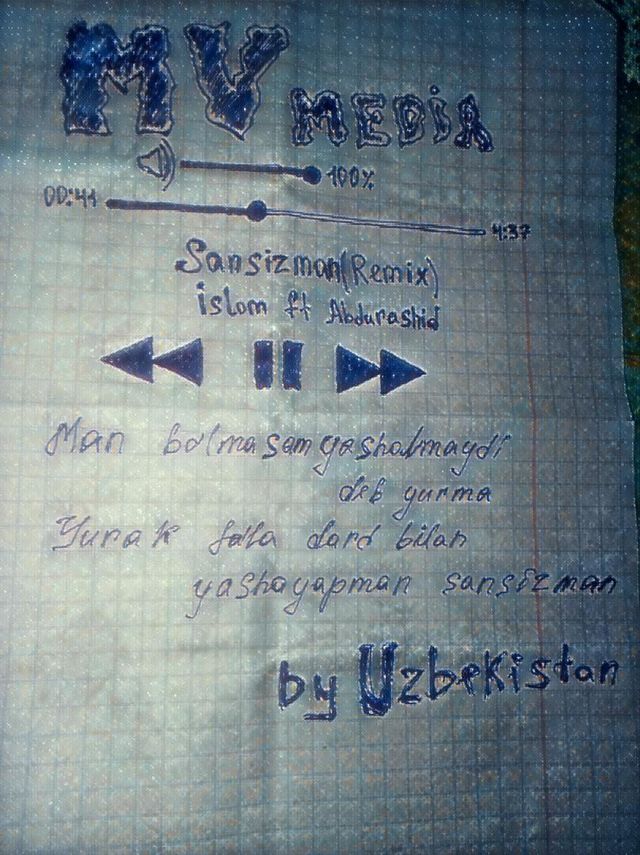 MV MEDIA
100%
00:41
4:37
Sansizman (Remix)
islom ft Abdurashid
Man bo'lmasam yasholmaydi
deb yurma
Yurak la dard bilan
yashayapman sansizman
by Uzbekistan